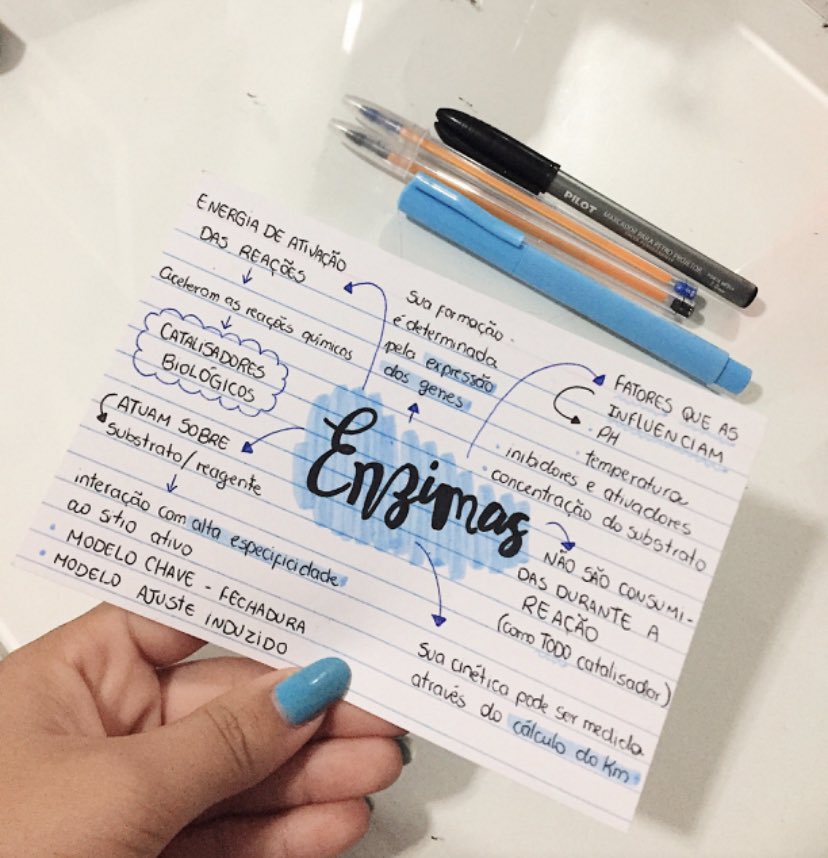 ENERGIA DE ATIVAÇÃO
DAS REAÇÕES
Aceleram as reações químicas
CATALISADORES
BIOLÓGICOS
ATUAM SOBRE
substrato/reagente
interação com alta especificidade
ao sítio ativo
• MODELO CHAVE - FECHADURA
• MODELO AJUSTE INDUZIDO
Sua formação
é determinada
pela expressão
dos genes
Enzimas
FATORES QUE AS
INFLUENCIAM
• PH
• temperatura
• inibidores e ativadores
• concentração do substrato
NÃO SÃO CONSUMI-
DAS DURANTE A
REAÇÃO
(como TODO catalisador)
Sua cinética pode ser medida
através do cálculo do Km
PILOT
MARCADOR PARA RETRO PROJETOR